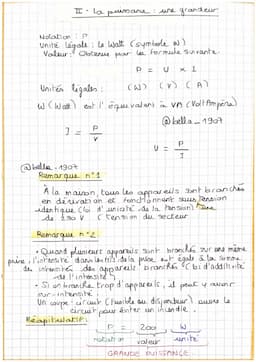 II - La puissance : une grandeur
Notation : P
Unité légale : le Watt (symbole W)
Valeur : Obtenue par la formule suivante
P = U x I
Unités légales : (W) (V) (A)
W (Watt) est l'équivalent à VA (Volt Ampère)
@bella_1907
I = P / V
U = P / I
@bella_1907
Remarque n°1
À la maison, tous les appareils sont branchés
en dérivation et fonctionnent sous tension
identique (loi d'unicité de la tension)
de 230 V (tension du secteur
Remarque n°2
• Quand plusieurs appareils sont branchés sur une même
prise, l'intensité dans la prise est égale à la somme
des intensités des appareils branchés (loi d'additivité
de l'intensité)
• Si on branche trop d'appareils, il peut y avoir
sur-intensité
Un coupe-circuit (fusible ou disjoncteur) ouvre le
circuit pour éviter un incendie.
Récapitulatif :
P = 200 W
notation valeur unité
GRANDE PUISSANCE